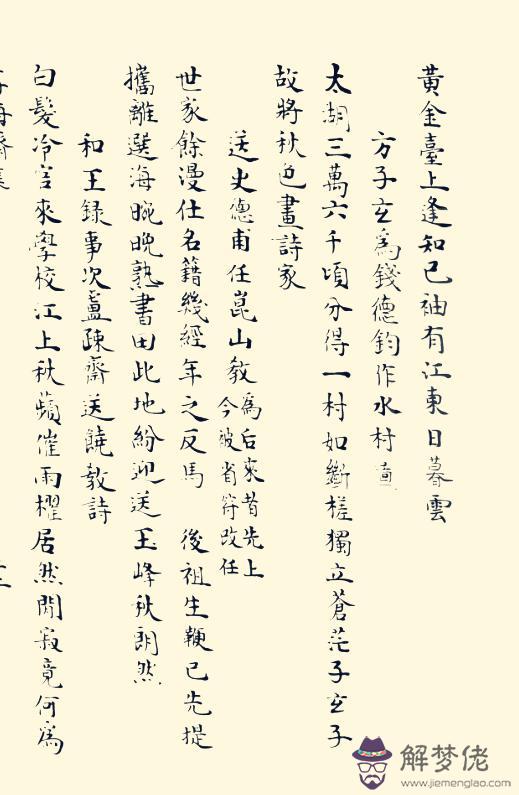 黃金臺上逢知已袖有江東日暮雲
方子玄為錢德鈞作水村
太湖三萬六千頃分得一村如斷槎獨立蒼茫子玄子
故將秋色畫詩家
送史德甫任崑山教
為后來昔先上
今被省符改任
世家餘漫仕名籍幾經年之反馬 後祖生鞭已先提
攜離選海晼晚熟書田此地紛迎送玉峰秋朗然
和王録事次盧疎齋送饒教詩
白髮冷官來學校江上秋蘋催雨櫂居然閒寂竟何為
解梦佬
www.jiemenglao.com